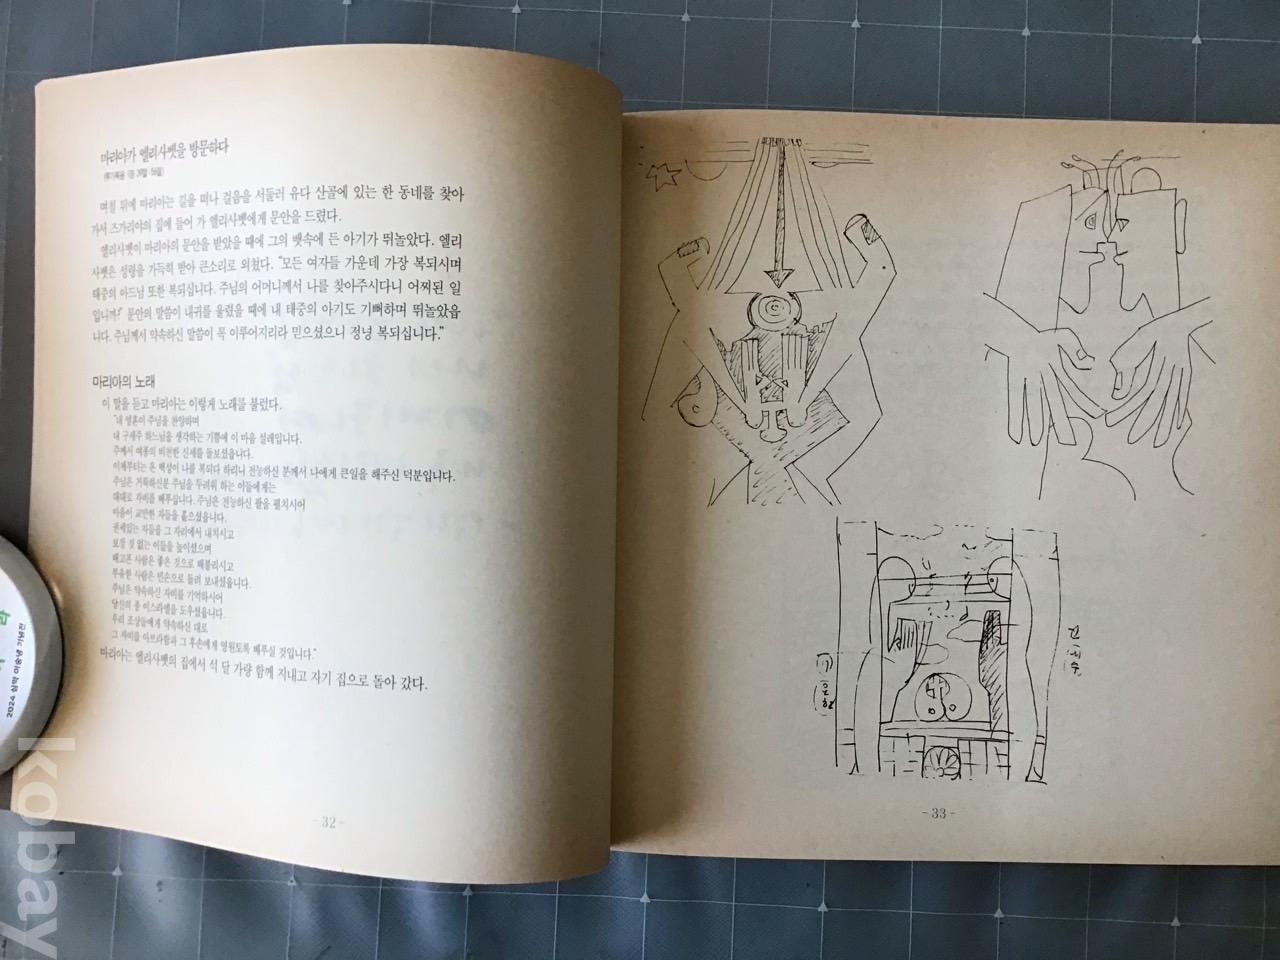 마리아가 엘리사벳을 방문하다
(루가복음 1장 39절-56절)
며칠 뒤에 마리아는 길을 떠나 걸음을 서둘러 유다 산골에 있는 한 동네를 찾아
가서 즈가리야의 집에 들어 가 엘리사벳에게 문안을 드렸다.
엘리사벳이 마리아의 문안을 받았을 때에 그의 뱃속에 든 아기가 뛰놀았다. 엘리
사벳은 성령을 가득히 받아 큰소리로 외쳤다. "모든 여자들 가운데 가장 복되시며
태중의 아드님 또한 복되십니다. 주님의 어머니께서 나를 찾아주시다니 어찌된 일
입니까? 문안의 말씀이 내귀를 울렸을 때에 내 태중의 아기도 기뻐하며 뛰놀았읍
니다. 주님께서 약속하신 말씀이 꼭 이루어지리라 믿으셨으니 정녕 복되십니다."
마리아의 노래
이 말을 듣고 마리아는 이렇게 노래를 불렀다.
"내 영혼이 주님을 찬양하며
내 구세주 하느님을 생각하는 기쁨에 이 마음 설레입니다.
주께서 여종의 비천한 신세를 돌보셨읍니다.
이제부터는 온 백성이 나를 복되다 하리니 전능하신 분께서 나에게 큰일을 해주신 덕분입니다.
주님은 거룩하신분 주님을 두려워 하는 이들에게는
대대로 자비를 베푸십니다. 주님은 전능하신 팔을 펼치시어
마음이 교만한 자들을 흩으셨읍니다.
권세있는 자들을 그 자리에서 내치시고
보잘 것 없는 이들을 높이셨으며
배고픈 사람은 좋은 것으로 배불리시고
부유한 사람은 빈손으로 돌려 보내셨읍니다.
주님은 약속하신 자비를 기억하시어
당신의 종 이스라엘을 도우셨읍니다.
우리 조상들에게 약속하신 대로
그 자비를 아브라함과 그 후손에게 영원토록 베푸실 것입니다."
마리아는 엘리사벳의 집에서 석 달 가량 함께 지내고 자기 집으로 돌아 갔다.
- 32 -
- 33 -
2024 심악 이숭녕 기념전
kobay